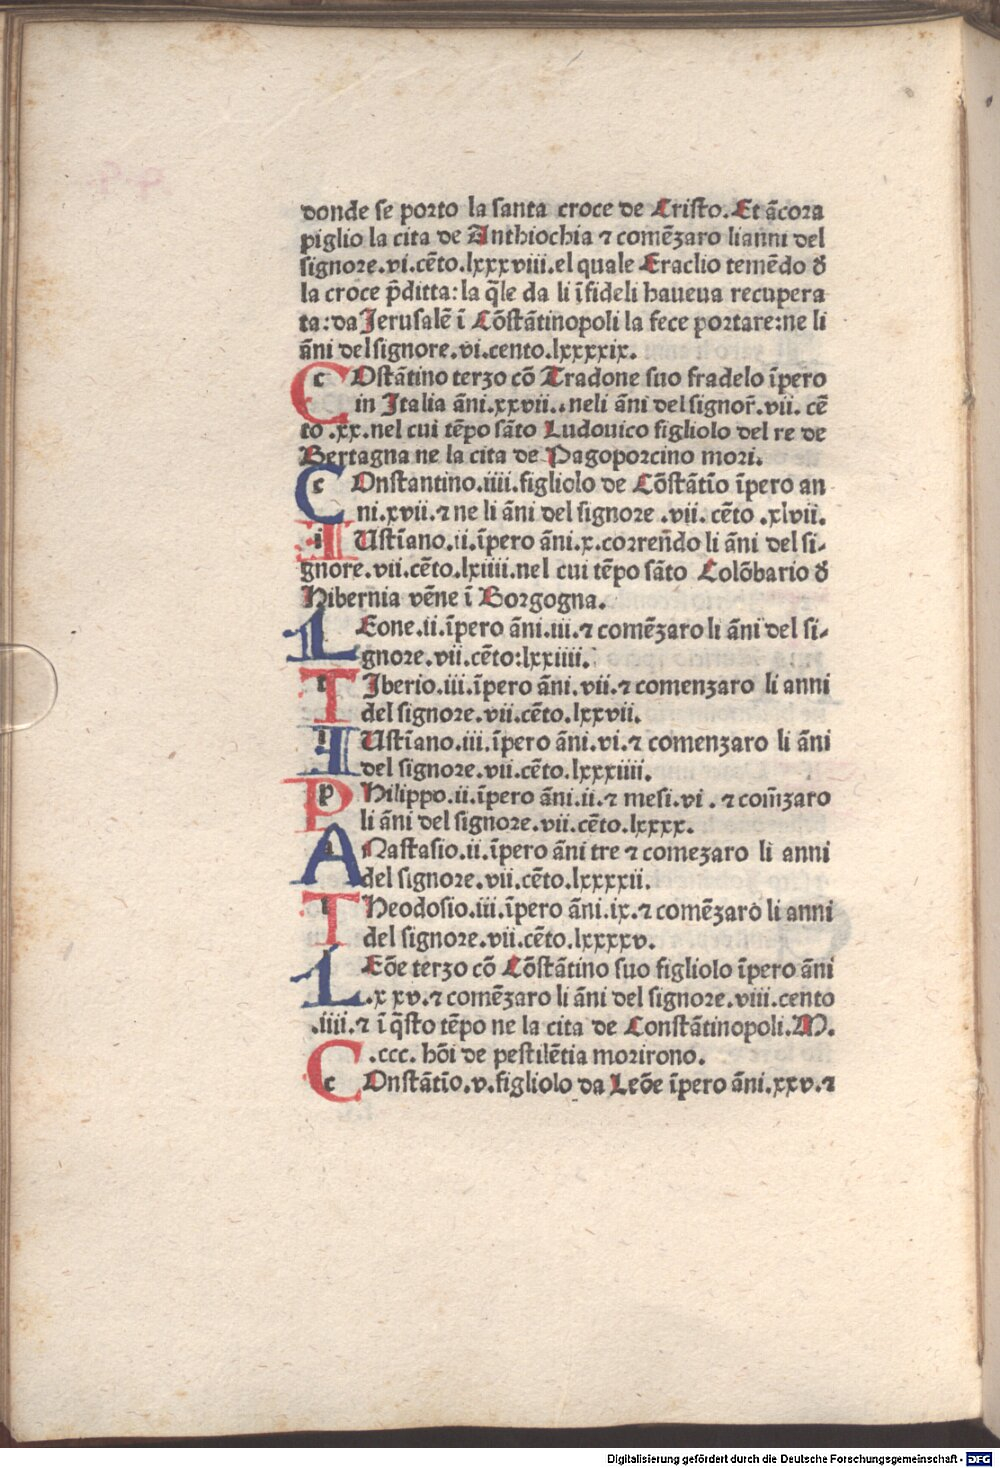 donde se porto la santa croce de Cristo. Et ācora
piglio la cita de Anthiochia ⁊ comēzaro lianni del
signore.vi.cēto.lxxxviii.el quale Eraclio temēdo đ
la croce p̄ditta: la q̄le da li īfideli haueua recupera
ta: da Jerusalē ī Cōstātinopoli la fece portare: ne li
āni del signore.vi.cento.lxxxxix.
COstātino terzo cō Tradone suo fradelo īpero
in Italia āni.xxvii..neli āni del signor̄.vii. cē
to .xx.nel cui tēpo sāto Ludouico figliolo del re de
Bertagna ne la cita de Pagoporcino mori.
COnstantino.iiii.figliolo de Cōstātīo īpero an
ni.xvii.⁊ ne li āni del signore .vii. cēto .xlvii.
IUstīano.ii.īpero āni.x.correñdo li āni del si-
gnore.vii.cēto.lxiiii.nel cui tēpo sāto Colōbario đ
Hibernia vēne ī Borgogna.
LEone.ii.īpero āni.iii.⁊ comēzaro li āni del si-
gnore.vii.cēto:lxxiiii.
TIberio.iii.īpero āni.vii.⁊ comenzaro li anni
del signore.vii.cēto.lxxvii.
IUstīano.iii.īpero āni.vi.⁊ comenzaro li āni
del signore.vii.cēto.lxxxiiii.
PHilippo.ii.īpero āni.ii.⁊ mesi.vi . ⁊ com̄zaro
li āni del signore.vii.cēto.lxxxx.
ANastasio.ii.īpero āni tre ⁊ comezaro li anni
del signore.vii.cēto.lxxxxii.
THeodosio.iii.īpero āni.ix.⁊ comēzaro li anni
del signore.vii.cēto.lxxxxv.
LEōe terzo cō Cōstātino suo figliolo īpero āni
.xxv.⁊ comēzaro li āni del signore.viii.cento
.iiii.⁊ ī q̄sto tēpo ne la cita de Constātinopoli.M.
.ccc. hōi de pestilētia morirono.
COnstātīo.v.figliolo da Leōe īpero āni.xxv.⁊
Digitalisierung gefördert durch die Deutsche Forschungsgemeinschaft - DFG